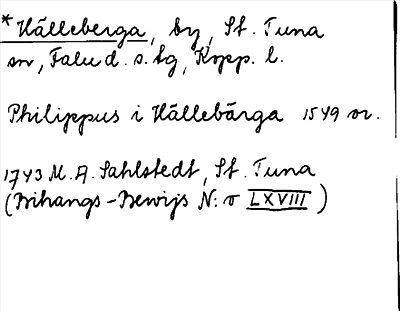 * Hälleberga, by, St. Tuna
sn, Falu d. s. tg, Kopp. l.
Philippus i Hällebärga 1549 or.
1743 M. A. Sahlstedt, St. Tuna
(Bihangs-Bewijs N:o LXVIII)